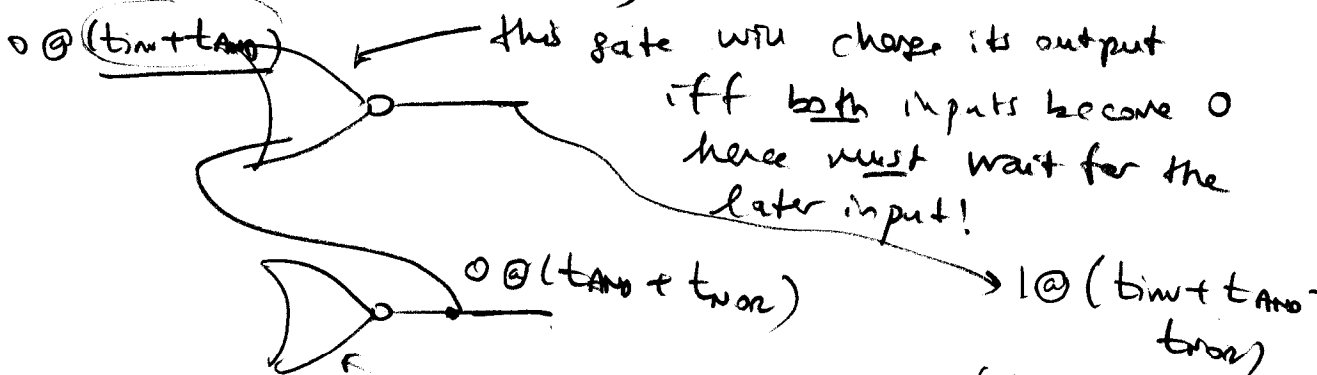 0 @ (tinv + tAND)
this gate will change its output
iff both inputs become 0
hence must wait for the
later input!
0 @ (tAND + tNOR)
1 @ (tinv + tAND +
tNOR)